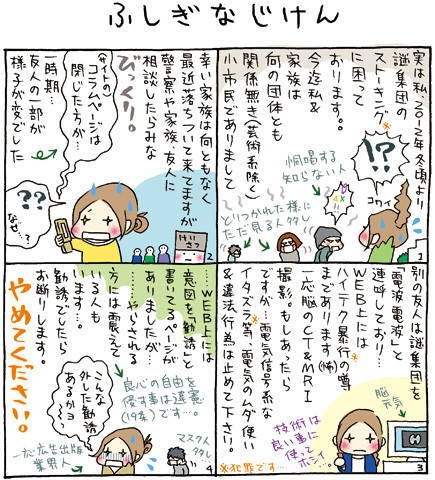 ふしぎなじけん
実は私、2012年冬頃より
謎集団の
ストーキング※
に困って
おります。
今迄私&
家族は
何の団体とも
関係無き(芸術系除く)
小市民でありまして
!?
コワイ
恫喝する
知らない人
とりつかれた様に
ただ見る人タタレ
1
幸い家族は何ともなく
最近落ちついて来てますが
警察や家族、友人に
相談したらみな
びっくり。
(サイトの)
コラムページは
閉じた方が…
一時期…
友人の一部が
様子が変でした
??
なぜ…?
けいさつ
2
別の友人は謎集団を
「電波電波」と
連呼しており…
WEB上には
ハイテク暴行※の噂
まであります(怖)
一応脳のCT&MRI
撮影。もしあったら
ですが…電気信号系な
イタズラ※等、電気のムダ使い
&違法行為は止めて下さい。
脳
元気
技術は
良い事に
使って
ホシ。
※犯罪です…
3
…WEB上には
意図を「勧誘」と
書いてるページが
ありましたが…
……やらされる
うちは震えて
いる人も
います…。
勧誘でしたら
お断りします。
やめてください。
良心の自由を
侵す事は違憲
(19条)です…。
そんな
外した勧誘
あるかヨ〜?
一応広告出版
業界人
マスク人
タタレ
4